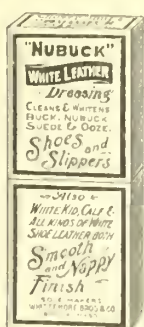 "NUBUCK"
WHITE LEATHER
Dressing
CLEANS & WHITENS
BUCK, NUBUCK
SUEDE & OOZE.
Shoes and
Slippers
Also
WHITE KID, CALF &
ALL KINDS OF WHITE
SHOE LEATHER BOTH
Smooth
and Nappy
Finish
SOLE MAKERS
WHITTEMORE BROS & CO